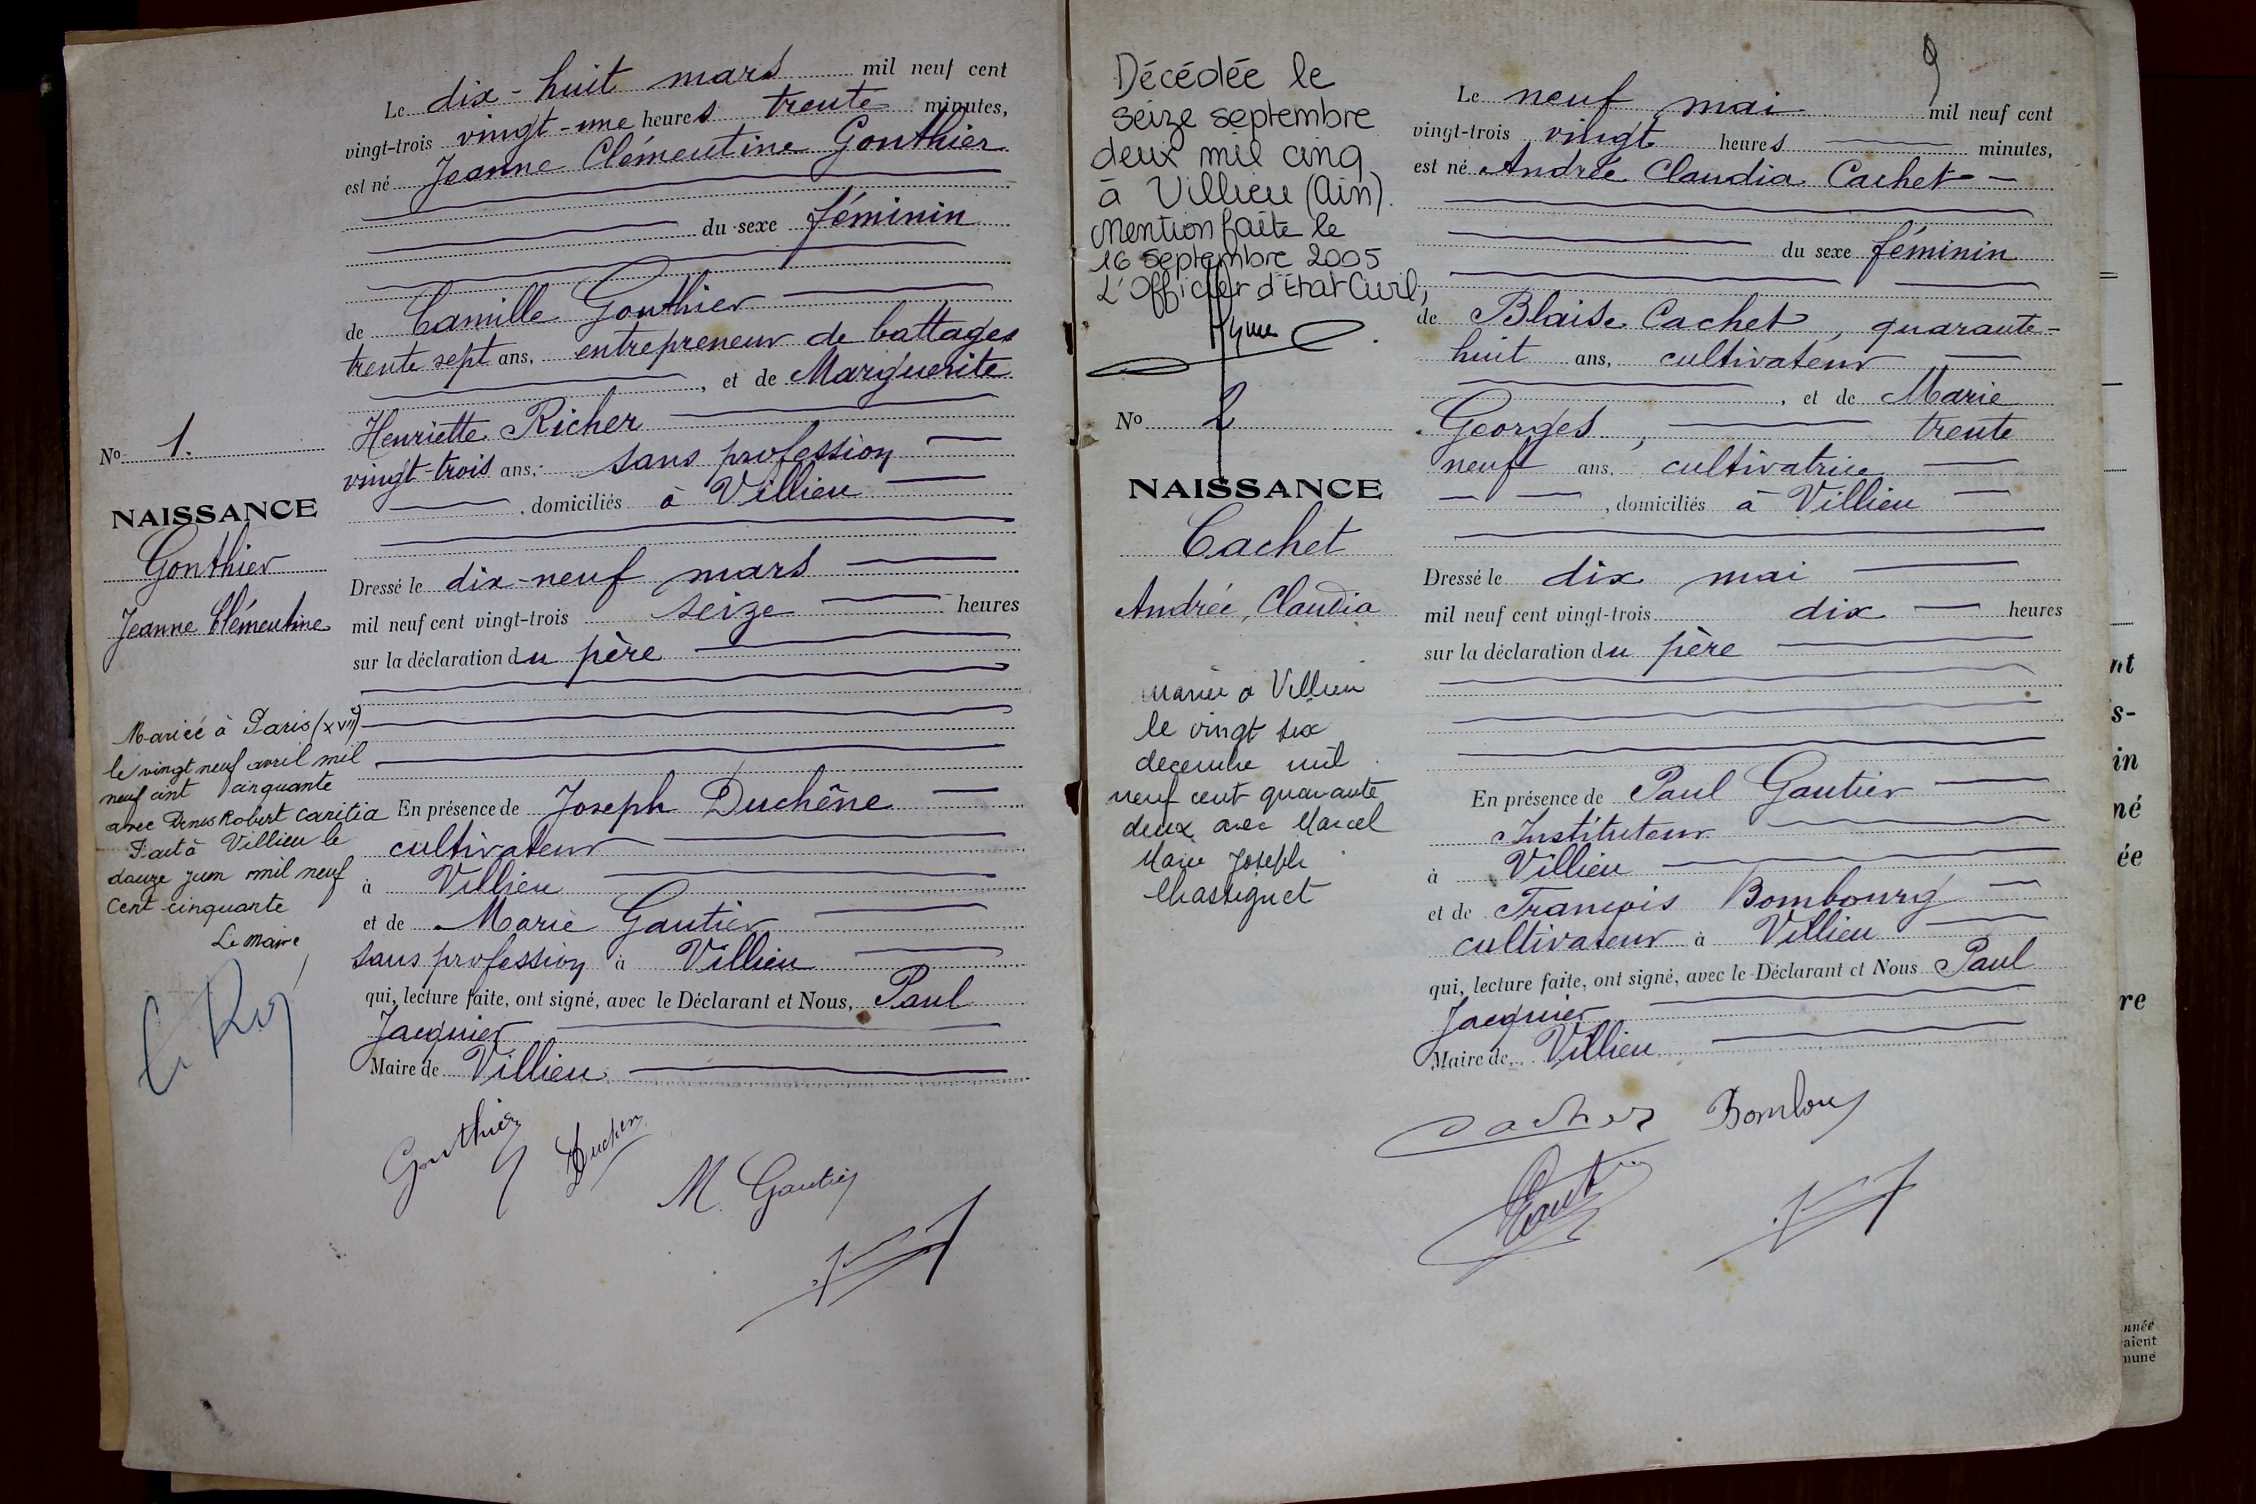 Le dix-huit mars mil neuf cent
vingt-trois vingt-une heures trente minutes,
est né Jeanne Clémentine Gonthier
du sexe féminin
de Camille Gonthier
trente sept ans, entrepreneur de battages
, et de Marguerite
Henriette Richer
vingt-trois ans, sans profession
, domiciliés à Villieu
Dressé le dix-neuf mars
mil neuf cent vingt-trois seize heures
sur la déclaration du père
En présence de Joseph Duchêne
cultivateur
à Villieu
et de Marie Gautier
sans profession à Villieu
qui, lecture faite, ont signé, avec le Déclarant et Nous, Paul
Jacquier
Maire de Villieu
Gonthier
Duchen
M. Gautier
No 1.
NAISSANCE
Gonthier
Jeanne Clémentine
Mariée à Paris (XVII)
le vingt neuf avril mil
neuf cent cinquante
avec Denis Robert Caritia
Fait à Villieu le
douze juin mil neuf
cent cinquante
Le Maire
Décédée le
seize septembre
deux mil cinq
à Villieu (Ain).
Mention faite le
16 septembre 2005
L'Officier d'Etat Civil,
No 2
NAISSANCE
Cachet
Andrée, Claudia
Mariée à Villieu
le vingt six
decembre mil
neuf cent quarante
deux avec Marcel
Marie Joseph
Chassignet
9
Le neuf mai mil neuf cent
vingt-trois vingt heures minutes,
est né Andrée Claudia Cachet
du sexe féminin
de Blaise Cachet, quarante-
huit ans, cultivateur
, et de Marie
Georges, trente
neuf ans, cultivatrice
, domiciliés à Villieu
Dressé le dix mai
mil neuf cent vingt-trois dix heures
sur la déclaration du père
En présence de Paul Gautier
Instituteur
à Villieu
et de François Bombourg
cultivateur à Villieu
qui, lecture faite, ont signé, avec le Déclarant et Nous Paul
Jacquier
Maire de Villieu
Cachet Bombourg
nt
s-
in
né
ée
re
nnée
aient
mune